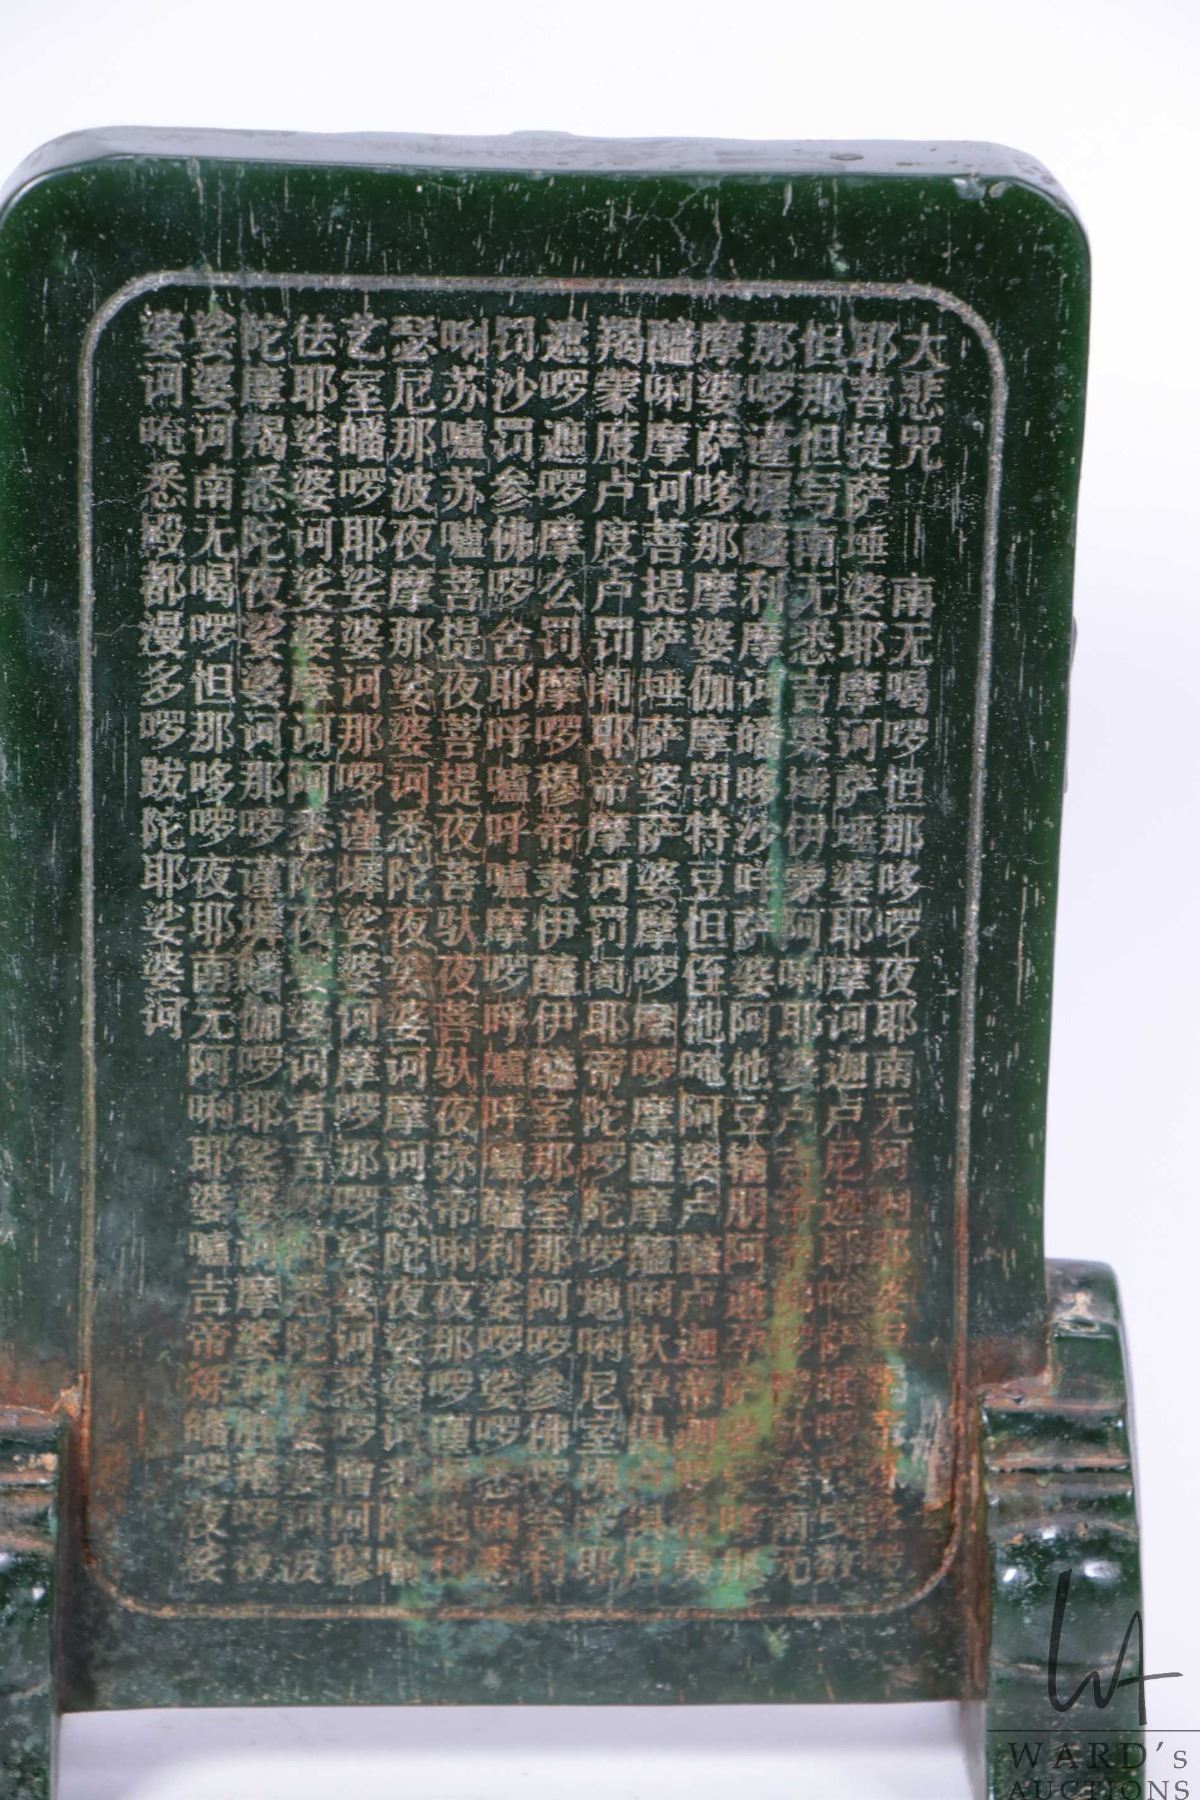 大悲咒 南无喝啰怛那哆啰夜耶南无诃唎耶婆
耶菩提萨埵婆耶摩诃萨埵婆耶摩诃迦卢尼迦耶唵萨皤啰罚曳数
怛那怛写南无悉吉栗埵伊蒙阿唎耶婆卢吉帝室佛啰楞驮婆南无
那啰谨墀醯利摩诃皤哆沙咩萨婆阿他豆输朋阿逝孕萨婆萨哆那
摩婆萨哆那摩婆伽摩罚特豆怛侄他唵阿婆卢醯卢迦帝迦罗帝夷
醯唎摩诃菩提萨埵萨婆萨婆摩啰摩啰摩醯摩醯唎驮孕俱卢俱卢
羯蒙度卢度卢罚阇耶帝摩诃罚阇耶帝陀啰陀啰地唎尼室佛啰耶
遮啰遮啰摩么罚摩啰穆帝隶伊醯伊醯室那室那阿啰参佛啰舍利
罚沙罚参佛啰舍耶呼嚧呼嚧摩啰呼嚧呼嚧醯利娑啰娑啰悉唎悉
唎苏嚧苏嚧菩提夜菩提夜菩驮夜菩驮夜弥帝唎夜那啰谨墀地利
瑟尼那波夜摩那娑婆诃悉陀夜娑婆诃摩诃悉陀夜娑婆诃悉陀喻
艺室皤啰耶娑婆诃那啰谨墀娑婆诃摩啰那啰娑婆诃悉啰僧阿穆
佉耶娑婆诃娑婆摩诃阿悉陀夜娑婆诃者吉啰阿悉陀夜娑婆诃波
陀摩羯悉陀夜娑婆诃那啰谨墀皤伽啰耶娑婆诃摩婆利胜羯啰夜
娑婆诃南无喝啰怛那哆啰夜耶南无阿唎耶婆嚧吉帝烁皤啰夜娑
婆诃唵悉殿都漫多啰跋陀耶娑婆诃
WA
WARD's
AUCTIONS